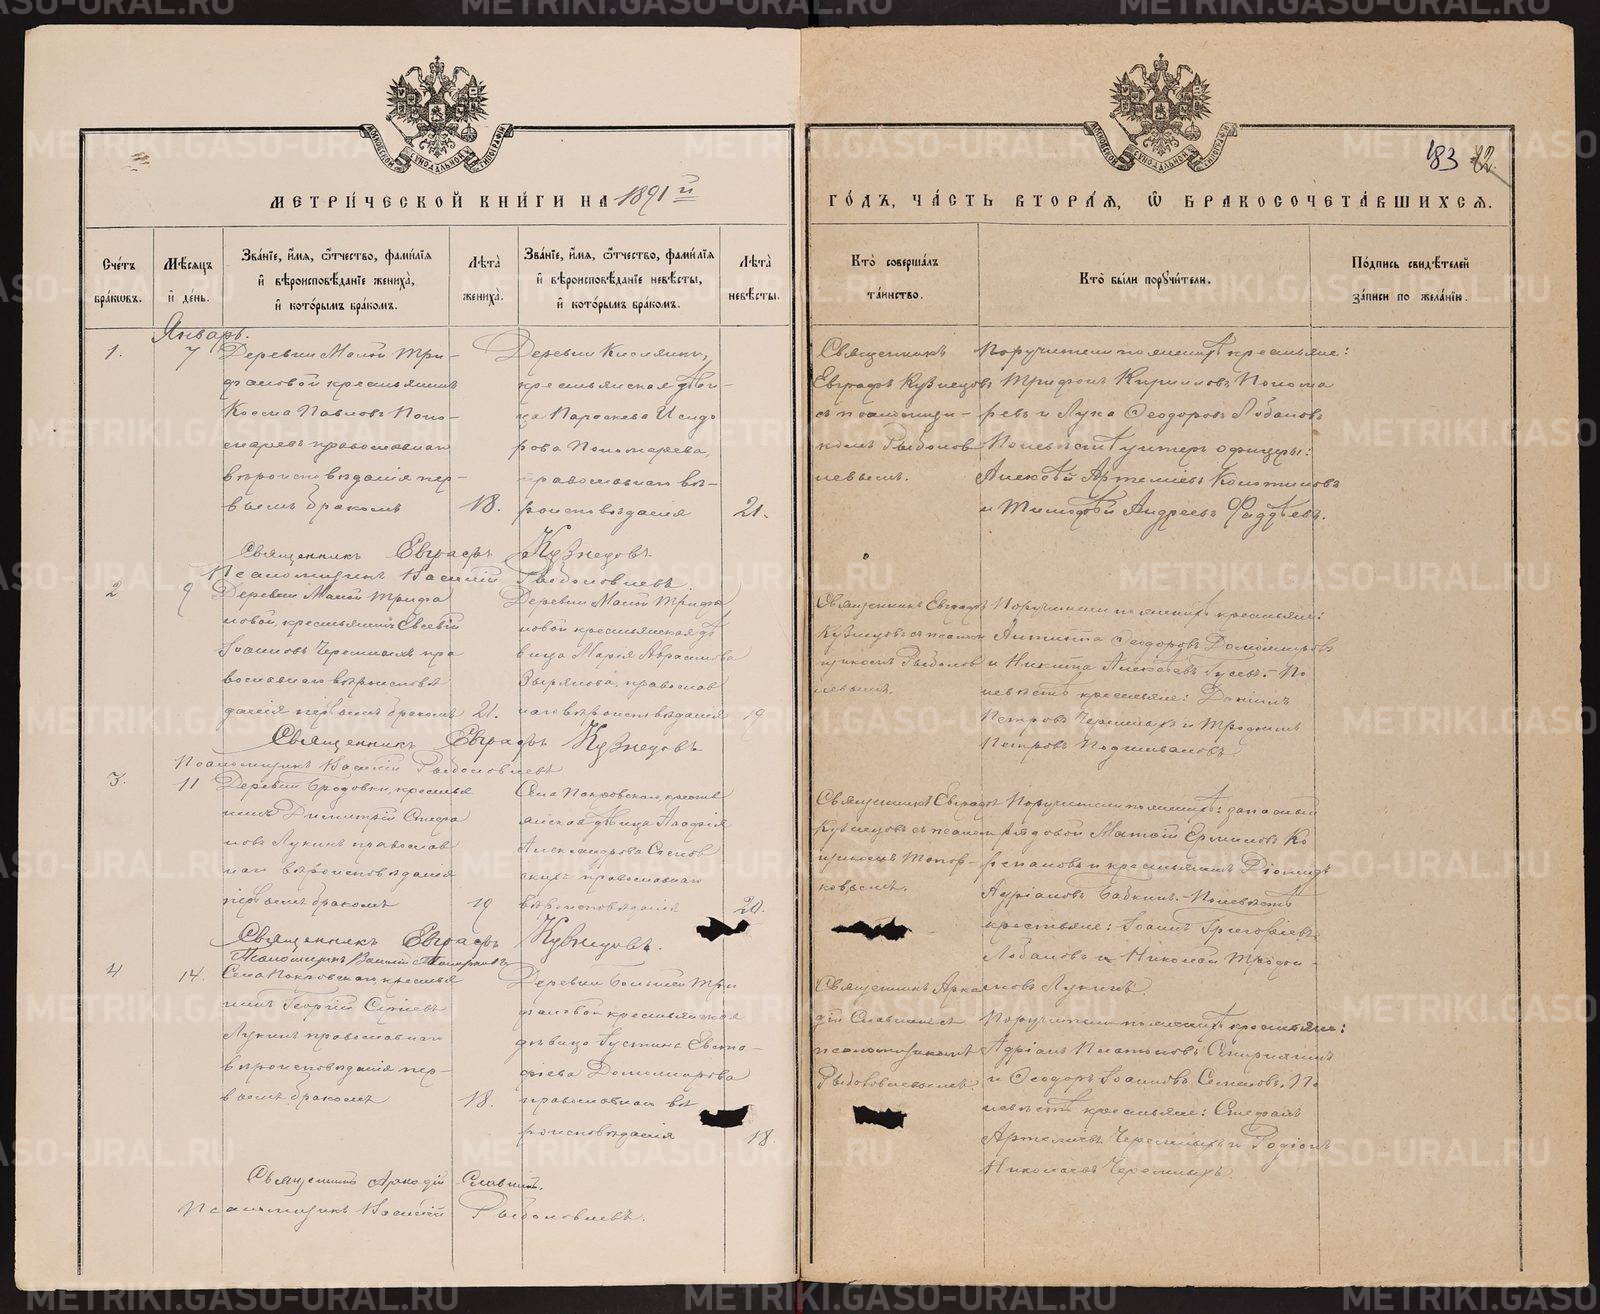 МЕТРИ́ЧЕСКОЙ КНИ́ГИ НА 1891й
ГО́ДЪ, ЧА́СТЬ ВТОРА́Ѧ, Ѡ БРАКОСОЧЕТА́ВШИХСѦ.
183 22.
Сче́тъ бра́кѡвъ.
Мѣ́сяцъ и҆ де́нь.
Зва́нїе, и҆́мѧ, ѻ҆́тчество, фами́лїѧ и҆ вѣроисповѣ́данїе жениха̀, и҆ кото́рымъ бра́комъ.
Лѣ́та жениха̀.
Зва́нїе, и҆́мѧ, ѻ҆́тчество, фами́лїѧ и҆ вѣроисповѣ́данїе невѣ́сты, и҆ кото́рымъ бра́комъ.
Лѣ́та невѣ́сты.
Кто̀ соверша́лъ та́инство.
Кто̀ бы́ли порꙋчи́тели.
По́дпись свидѣ́телей за́писи по жела́нїю.
Январь.
1.
7
Деревни Малой Три-
фановой крестьянинъ
Косма Павловъ Поно-
маревъ православнаго
вѣроисповѣданія пер-
вымъ бракомъ
18.
Деревни Кисляни,
крестьянская дѣви-
ца Параскева Исидо
рова Пономарева,
православнаго вѣ-
роисповѣданія
21.
Священникъ
Евграфъ Кузнецовъ
съ псаломщи-
комъ Рыболов
левымъ.
Поручители по женихѣ крестьяне:
Трифонъ Кирилловъ Понома
ревъ и Лука Ѳеодоровъ Лобановъ
По невѣстѣ унтеръ офицеры:
Алексѣй Артемьевъ
и Тимофей Андреевъ Фаддѣевъ.
Священникъ Евграфъ Кузнецовъ.
Псаломщикъ Василій
2
9
Деревни Малой Трифа
новой, крестьянинъ Евсевій
Іоанновъ Черемныхъ пра
вославнаго вѣроисповѣ
данія первымъ бракомъ
21.
Деревни Малой Трифа
новой крестьянская дѣ
вица Марія Абрамова
Зырянова, православ
наго вѣроисповѣданія
19
Священникъ Евграфъ
Кузнецовъ съ псалом
щикомъ Рыболов
левымъ.
Поручители по женихѣ крестьяне:
Никита Ѳеодоровъ Домолиаровъ
и Никита Алексѣевъ Гусевъ. - По
невѣстѣ крестьяне: Даніилъ
Петровъ Черемныхъ и Трофимъ
Петровъ Подшиваловъ
Священникъ Евграфъ Кузнецовъ
Псаломщикъ Василій
3.
11
Деревни Бродовки, крестья
нинъ Димитрій Стефа
новъ Лукинъ православ
наго вѣроисповѣданія
первымъ бракомъ
19
Села Покровскаго, кресть
янская дѣвица Агафія
Александрова
православнаго
вѣроисповѣданія
20.
Священникъ Евграфъ
Кузнецовъ съ псалом
щикомъ Топор-
ковымъ.
Поручители по женихѣ: запасный
рядовой Матѳей Ермиловъ Ко
репановъ и крестьянинъ Діомидъ
Адріановъ Бабкинъ. - По невѣстѣ
крестьяне: Іоаннъ Григорьевъ
Лобановъ и Николай Трофи-
мовъ Лукинъ.
Священникъ Евграфъ Кузнецовъ.
Псаломщикъ Василій Топорковъ
4
14.
Села Покровскаго, крестья
нинъ Георгій Сергіевъ
Лукинъ православнаго
вѣроисповѣданія пер-
вымъ бракомъ
18.
Деревни Большой Три
фановой крестьянская
дѣвица Іустина Евста-
фіева Домолиарова
православнаго вѣ
роисповѣданія
18.
Священникъ Арка
дій Славнинъ съ
псаломщикомъ
Поручители по женихѣ крестьяне:
Адріанъ Платоновъ
и Ѳеодоръ Іоанновъ Семеновъ. По
невѣстѣ крестьяне: Стефанъ
Артемьевъ Черемныхъ и Родіонъ
Николаевъ Черемныхъ
Священникъ Аркадій Славнинъ.
Псаломщикъ Василій
METRIKI.GASO-URAL.RU